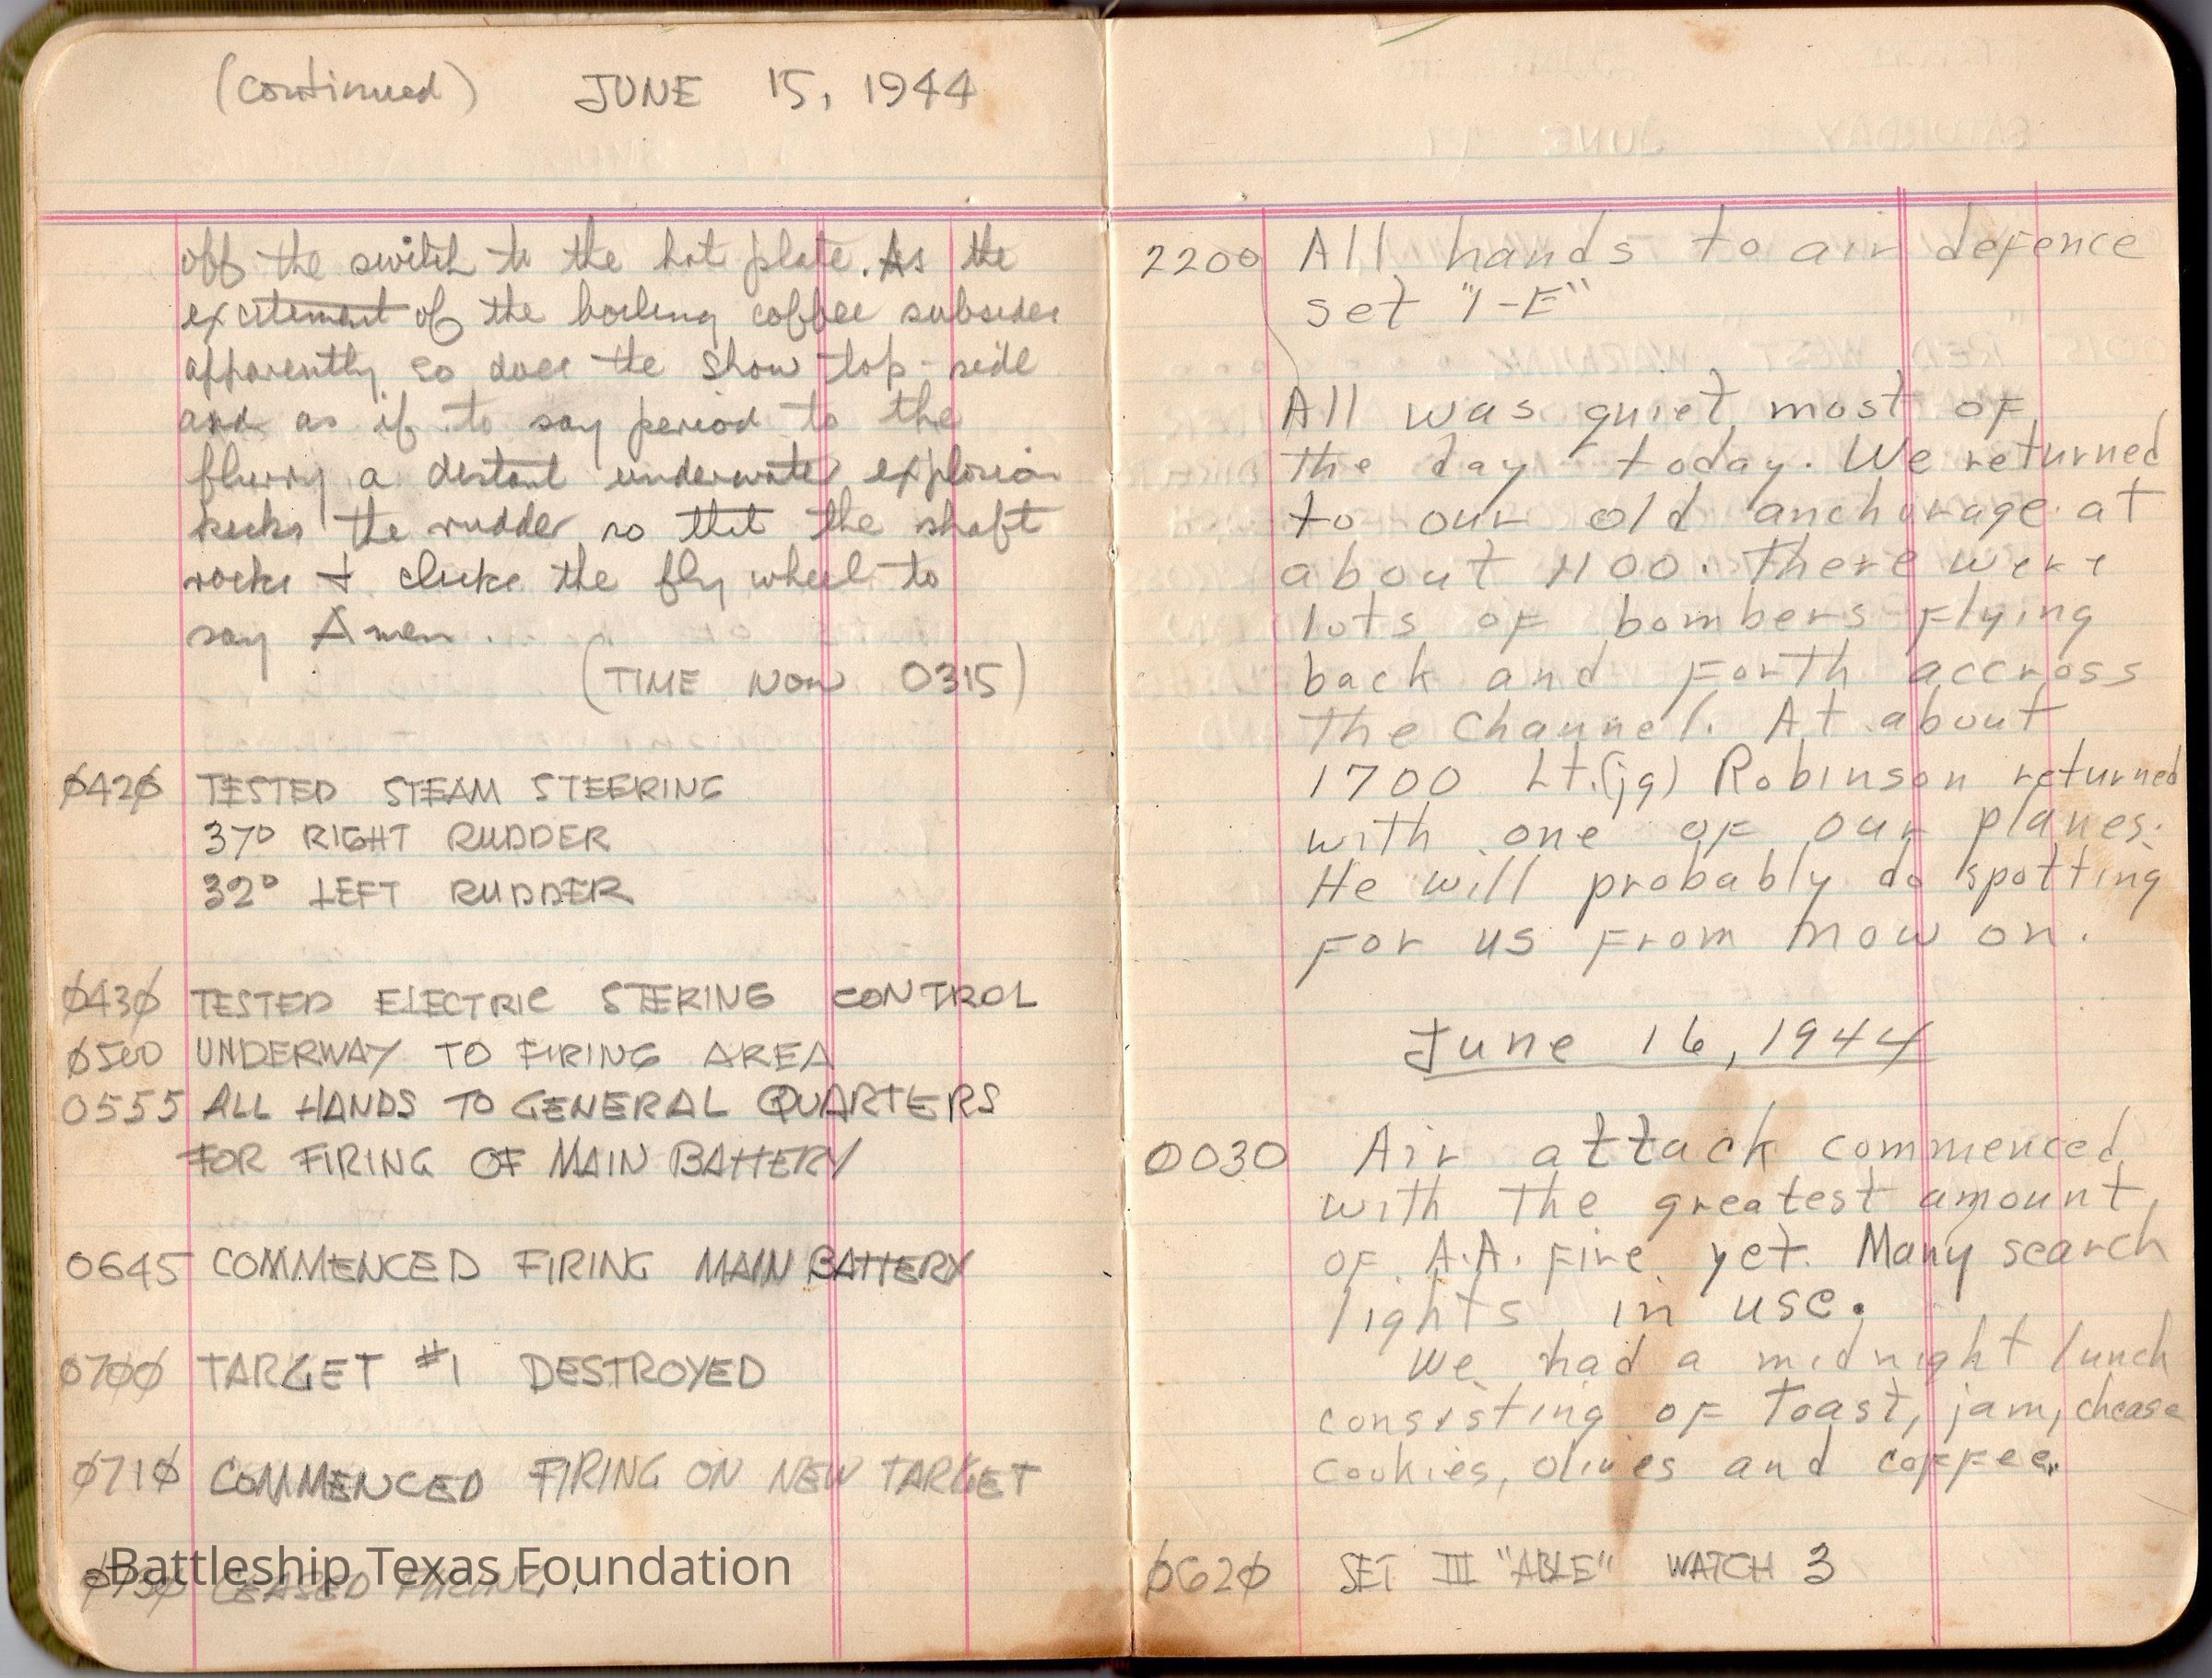 (continued) JUNE 15, 1944
off the switch to the hot plate. As the
excitement of the boiling coffee subsides
apparently so does the show top-side
and as if to say period to the
flurry a distant underwater explosion
kicks the rudder so that the shaft
rocks + clicks the fly wheel to
say Amen.
(TIME NOW 0315)
0420 TESTED STEAM STEERING
37° RIGHT RUDDER
32° LEFT RUDDER
0430 TESTED ELECTRIC STERING CONTROL
0500 UNDERWAY TO FIRING AREA
0555 ALL HANDS TO GENERAL QUARTERS
FOR FIRING OF MAIN BATTERY
0645 COMMENCED FIRING MAIN BATTERY
0700 TARGET #1 DESTROYED
0710 COMMENCED FIRING ON NEW TARGET
0730 CEASED FIRING.
Battleship Texas Foundation
2200 All hands to air defence
set "1-E"
All was quiet most of
the day today. We returned
to our old anchorage at
about 1100. There were
lots of bombers flying
back and forth accross
the Channel. At about
1700 Lt.(jg) Robinson returned
with one of our planes.
He will probably do spotting
for us from now on.
June 16, 1944
0030 Air attack commenced
with the greatest amount
of A.A. fire yet. Many search
lights in use.
We had a midnight lunch
consisting of toast, jam, chease
cookies, olives and coffee.
0620 SET III "ABLE" WATCH 3